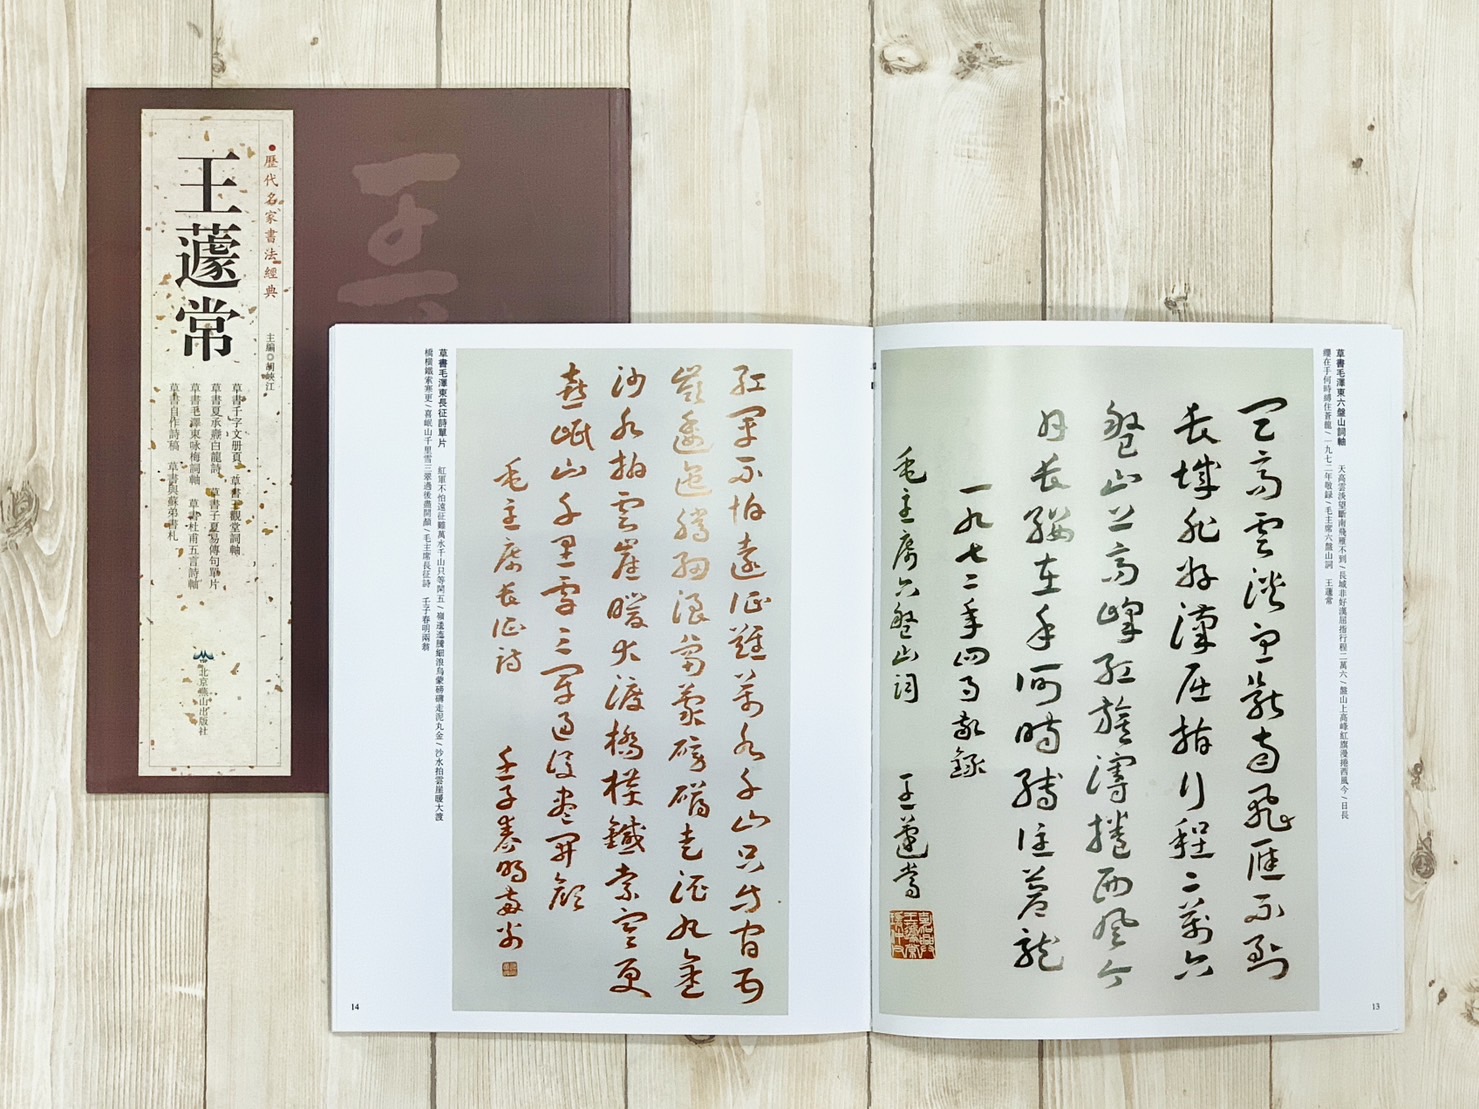 歷代名家書法經典
王蘧常
主編◎胡峽江
草書千字文册頁 草書王觀堂詞軸
草書夏承燾白龍詩 草書子夏易傳句單片
草書毛澤東咏梅詞軸 草書杜甫五言詩軸
草書自作詩稿 草書與蘇弟書札
北京燕山出版社
草書毛澤東六盤山詞軸 天高雲淡望斷南飛雁不到/長城非好漢屈指行程二萬六/盤山上高峰紅旗漫捲西風今/日長
纓在手何時縛住蒼龍/一九七二年敬録/毛主席六盤山詞 王蘧常
天高雲淡望斷南飛雁不到
長城非好漢屈指行程二萬六
盤山上高峰紅旗漫捲西風今
日長纓在手何時縛住蒼龍
一九七二年四月敬録
毛主席六盤山詞 王蘧常
13
紅軍不怕遠征難萬水千山只等閒五
嶺逶迤騰細浪烏蒙磅礴走泥丸金
沙水拍雲崖暖大渡橋橫鐵索寒更
喜岷山千里雪三軍過後盡開顏
毛主席長征詩 壬子春明兩翁
草書毛澤東長征詩單片 紅軍不怕遠征難萬水千山只等閒五/嶺逶迤騰細浪烏蒙磅礴走泥丸金/沙水拍雲崖暖大渡
橋橫鐵索寒更/喜岷山千里雪三軍過後盡開顏/毛主席長征詩 壬子春明兩翁
14